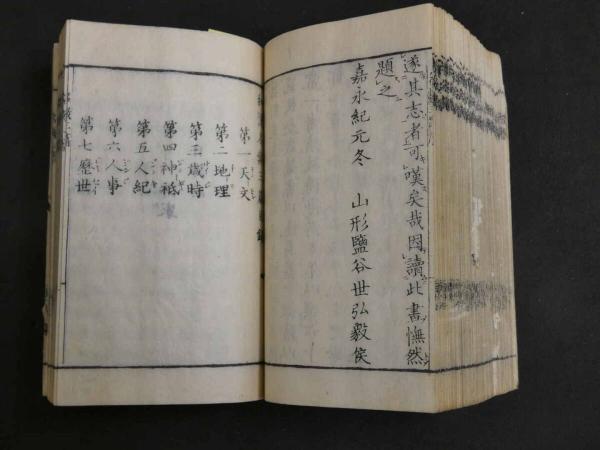 遂其志者可嘆矣哉因讀此書憮然
題之
嘉永紀元冬　山形鹽谷世弘毅侯
第一天文
第二地理
第三歳時
第四神祇
第五人紀
第六人事
第七歴世